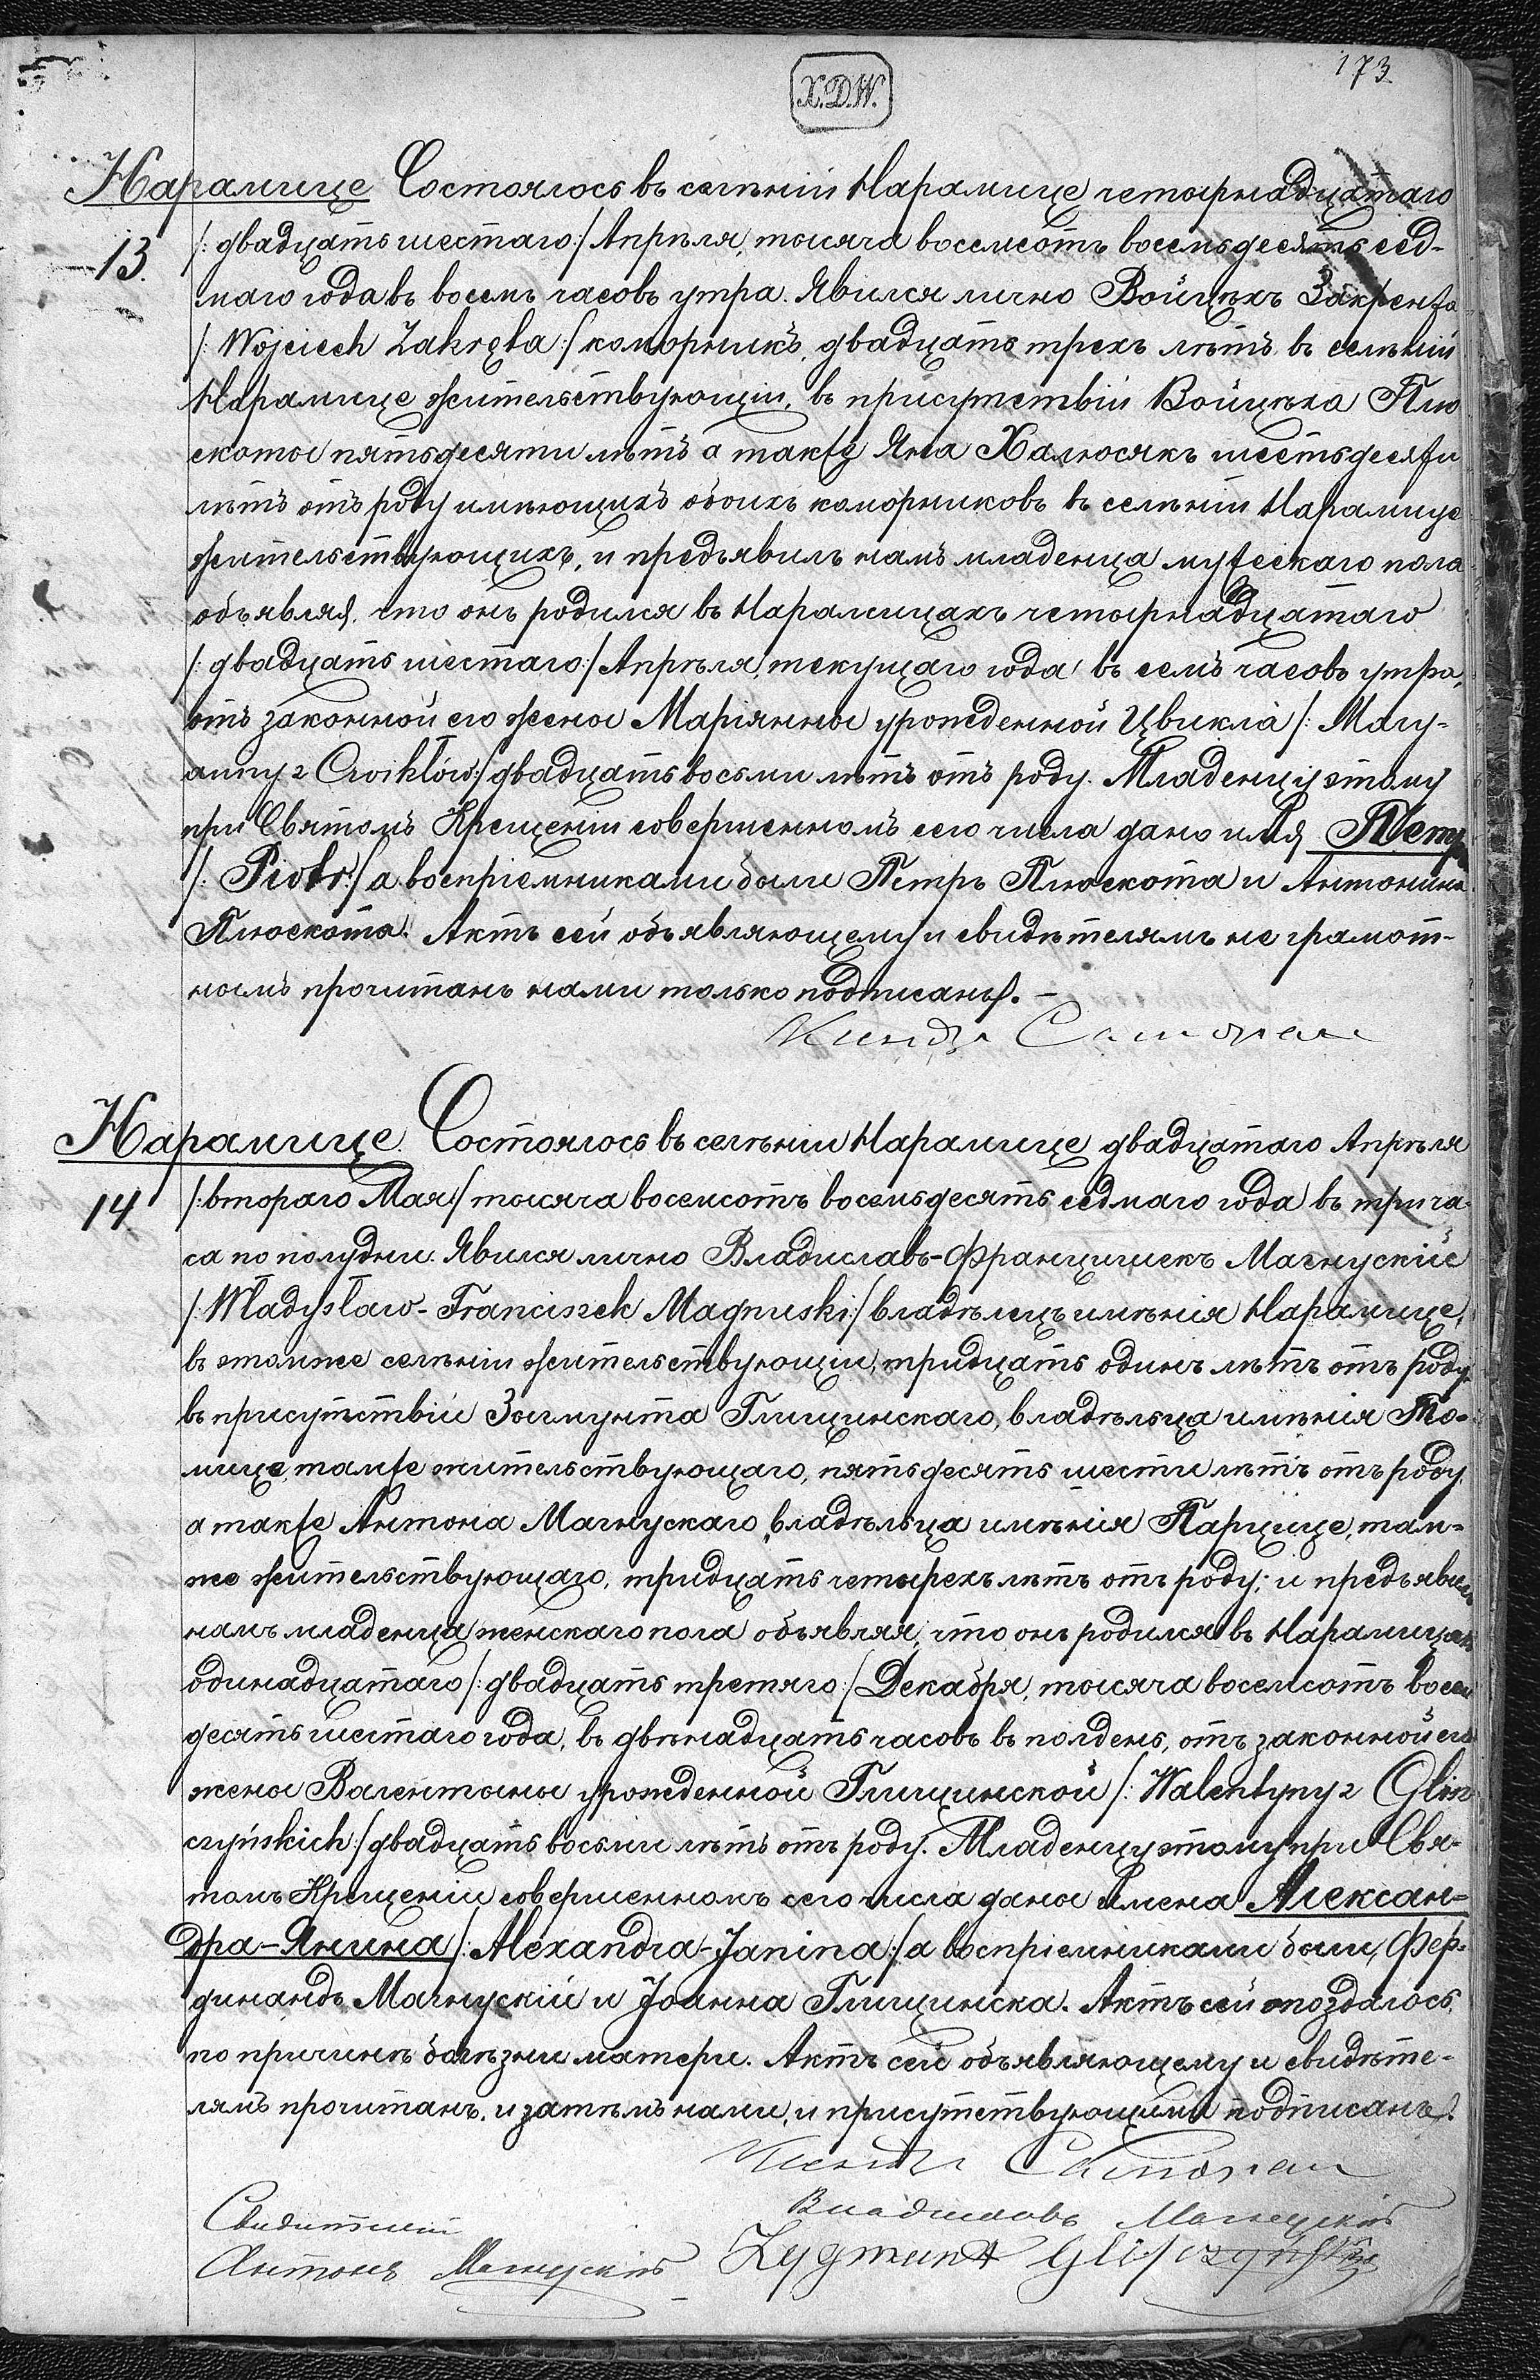 173
X.D.W.
Нарамице Состоялось въ селѣніи Нарамице четырнадцатаго
13. /: двадцать шестаго :/ Апрѣля, тысяча восемсотъ восемьдесять сед-
маго года въ восемь часовъ утра. Явился лично Войцѣхъ Закрента
/: Wojciech Zakręta :/ коморникъ, двадцать трехъ лѣтъ, въ селѣніи
Нарамице жительствующіи, въ присутствіи Войцѣха Плю
скоты пятьдесяти лѣтъ а также Яна Халюсякъ шестьдесяти
лѣтъ отъ роду имѣющихъ обоихъ коморниковъ въ селѣніи Нарамице
жительствующихъ, и предъявилъ намъ младенца мужескаго пола
объявляя, что онъ родился въ Нарамицахъ четырнадцатаго
/: двадцать шестаго :/ Апрѣля, текущаго года въ семь часовъ утра,
отъ законной его жены Маріянны урожденной Цвикла /: Mary-
anny z Cwikłów :/ двадцать восьми лѣтъ отъ роду. Младенцу этому
при Святомъ Крещеніи совершенномъ сего числа дано имя Петръ
/: Piotr :/ а воспріемниками были Петръ Плюскота и Антонина
Плюскота. Актъ сей объявляющему и свидѣтелямъ не грамот-
нымъ прочитанъ нами только подписанъ. —
Ксендзъ
Нарамице. Состоялось въ селѣніи Нарамице двадцатаго Апрѣля
14. /: втораго Мая :/ тысяча восемсотъ восемьдесять седмаго года въ три ча
са по полудни. Явился лично Владиславъ-Францишекъ Магнускій
/: Władysław-Franciszek Magnuski :/ владѣлецъ имѣнія Нарамице,
въ этомже селѣніи жительствующіи, тридцать одинъ лѣтъ отъ роду,
въ присутствіи Зыгмунта Глищинскаго, владѣльца имѣнія То-
мице, тамже жительствующаго, пятьдесять шести лѣтъ отъ роду,
а также Антона Магнускаго, владѣльца имѣнія Парцице, там-
же жительствующаго, тридцать четырехъ лѣтъ отъ роду; и предъявилъ
намъ младенца женскаго пола объявляя, что онъ родился въ Нарамицахъ
одинадцатаго /: двадцать третяго :/ Декабря, тысяча восемсотъ восем
десять шестаго года, въ двѣнадцать часовъ въ полдень, отъ законной его
жены Валентыны урожденной Глищинской /: Walentyny z Glin
czyńskich :/ двадцать восьми лѣтъ отъ роду. Младенцу этому при Свя-
томъ Крещеніи совершенномъ сего числа даны имена Алексан-
дра-Янина /: Alexandra-Janina :/ а воспріемниками были, Фер-
динандъ Магнускіи и Іоанна Глищинска. Актъ сей опоздалось,
по причинѣ болѣзни матери. Актъ сей объявляющему и свидѣте-
лямъ прочитанъ, и затѣмъ нами, и присутствующими подписанъ.
Ксендзъ
Владиславъ Магнускій
Свидѣтели
Антонъ Магнускій Zygmunt Gliszczyński